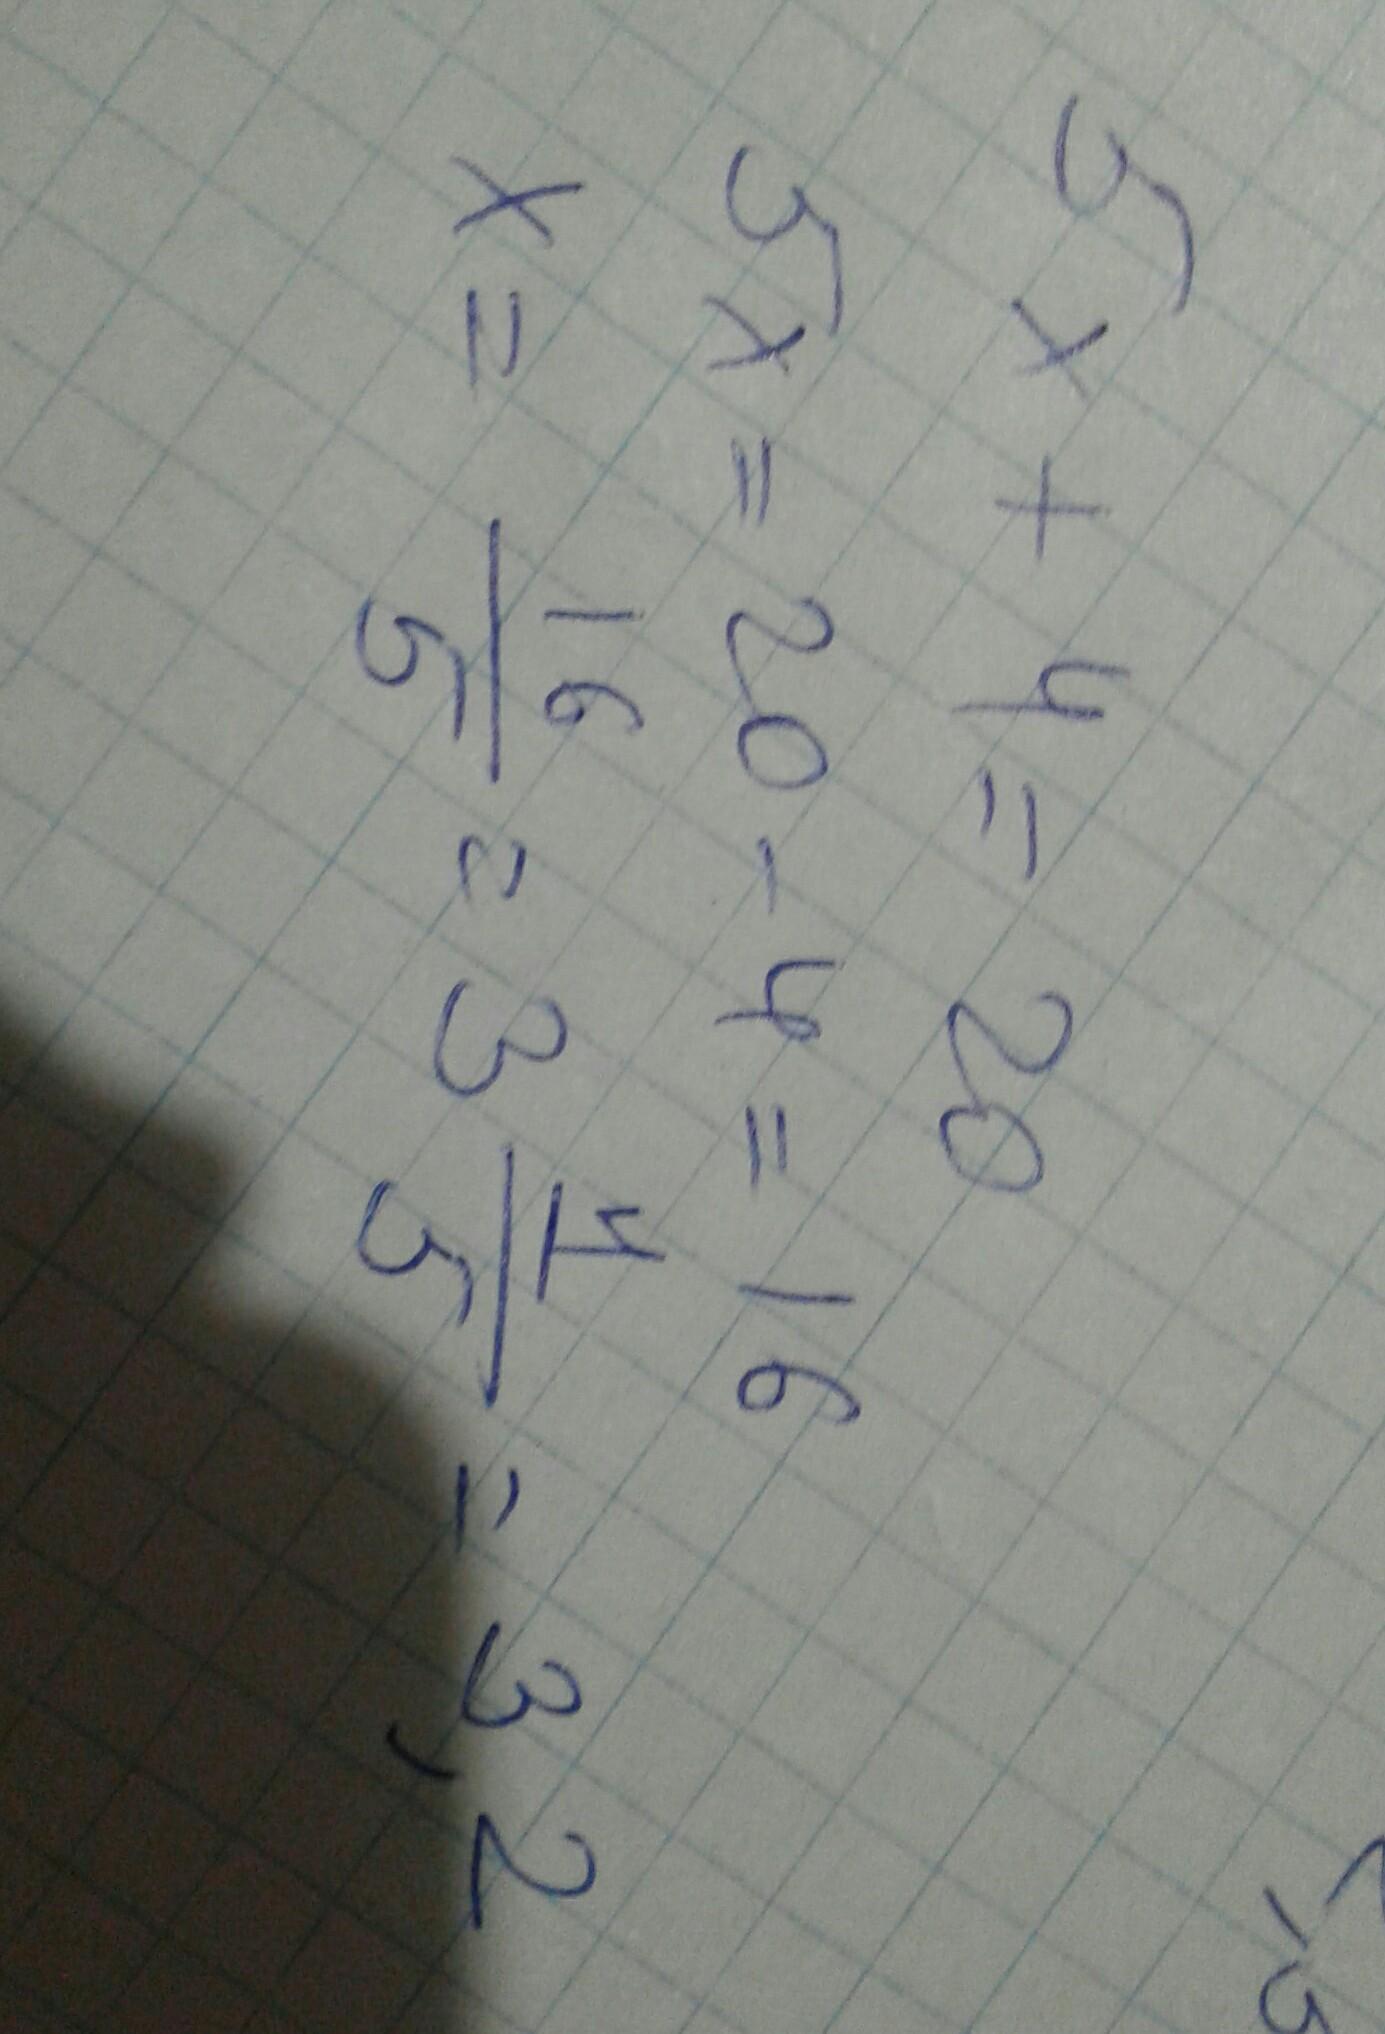 5x + 4 = 20
5x = 20 - 4 = 16
x = 16/5 = 3 1/5 = 3,2